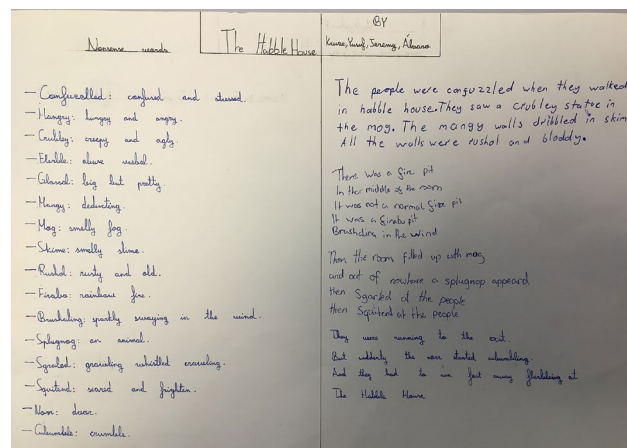 Nonsense words
The Habble House
BY
Yusuf, Jeremy, Álvaro
: confused and stressed.
— Hangry: hungry and angry.
— Crubley: creepy and ugly.
big but pretty.
— Mangy:
— Mog: smelly fog.
— Skime: smelly slime.
— Rushol: rusty and old.
— Firabo: rainbow fire.
— Brushaling: sparkly swaying in the wind.
— Splugnog: an animal.
growling whistled
— Squitend: scared and frighten.
door.
crumble.
The people were conguzzled when they walked
in habble house. They saw a crubley statue in
the mog. The mangy walls dribbled in skim
All the walls were rushol and bloddy.
There was a fire pit
In the middle of the room
It was not a normal fire pit
It was a firabo pit
Brushaling in the wind
Then the room filled up with mog
and out of nowhere a splugnog appeard
then Sgarled at the people
then Squitend at the people
They were running to the exit.
But suddenly the started
And they had to fast away at
The Habble House